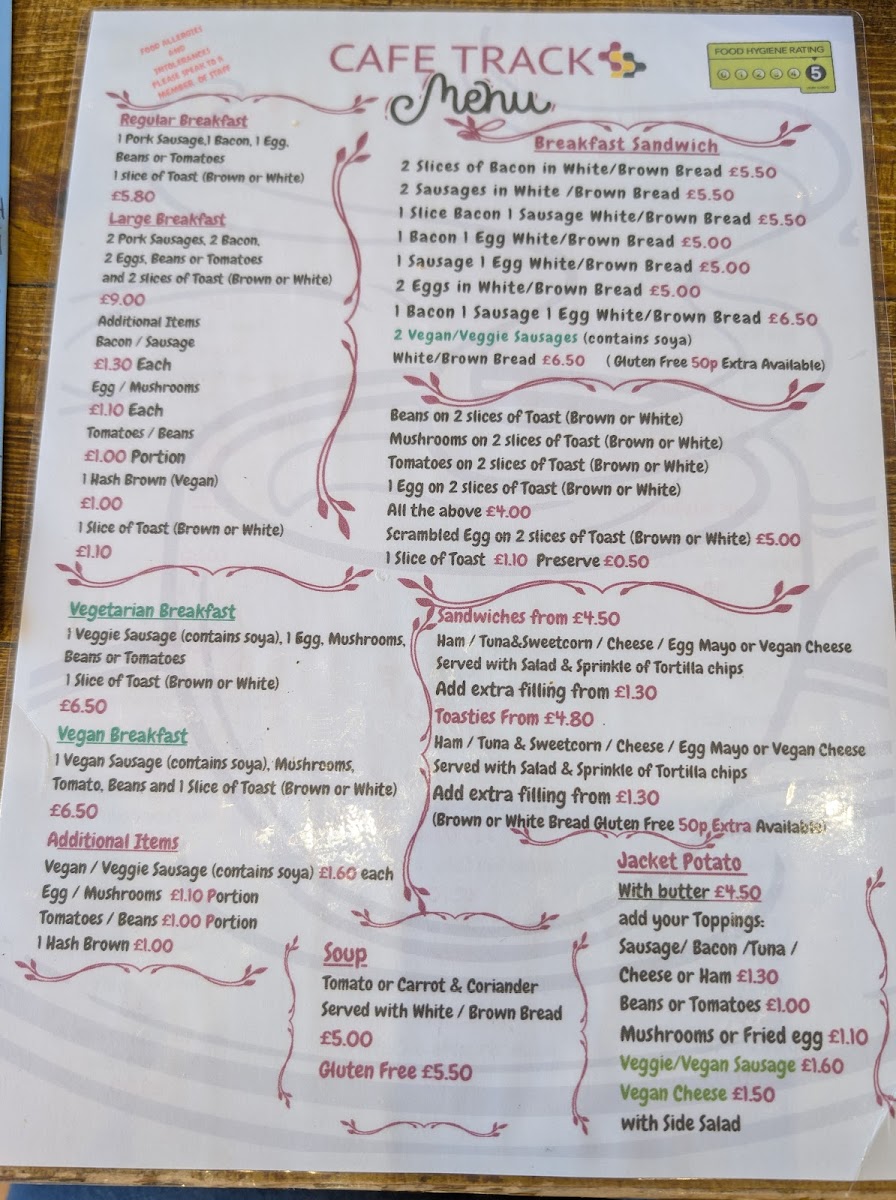 FOOD ALLERGIES
AND
INTOLERANCES
PLEASE SPEAK TO A
MEMBER OF STAFF
CAFE TRACK
Menu
FOOD HYGIENE RATING
0 1 2 3 4 5
Regular Breakfast
1 Pork Sausage,1 Bacon, 1 Egg,
Beans or Tomatoes
1 slice of Toast (Brown or White)
£5.80
Large Breakfast
2 Pork Sausages, 2 Bacon,
2 Eggs, Beans or Tomatoes
and 2 slices of Toast (Brown or White)
£9.00
Additional Items
Bacon / Sausage
£1.30 Each
Egg / Mushrooms
£1.10 Each
Tomatoes / Beans
£1.00 Portion
1 Hash Brown (Vegan)
£1.00
1 Slice of Toast (Brown or White)
£1.10
Breakfast Sandwich
2 Slices of Bacon in White/Brown Bread £5.50
2 Sausages in White /Brown Bread £5.50
1 Slice Bacon 1 Sausage White/Brown Bread £5.50
1 Bacon 1 Egg White/Brown Bread £5.00
1 Sausage 1 Egg White/Brown Bread £5.00
2 Eggs in White/Brown Bread £5.00
1 Bacon 1 Sausage 1 Egg White/Brown Bread £6.50
2 Vegan/Veggie Sausages (contains soya)
White/Brown Bread £6.50 ( Gluten Free 50p Extra Available)
Beans on 2 slices of Toast (Brown or White)
Mushrooms on 2 slices of Toast (Brown or White)
Tomatoes on 2 slices of Toast (Brown or White)
1 Egg on 2 slices of Toast (Brown or White)
All the above £4.00
Scrambled Egg on 2 slices of Toast (Brown or White) £5.00
1 Slice of Toast £1.10 Preserve £0.50
Vegetarian Breakfast
1 Veggie Sausage (contains soya), 1 Egg, Mushrooms,
Beans or Tomatoes
1 Slice of Toast (Brown or White)
£6.50
Vegan Breakfast
1 Vegan Sausage (contains soya), Mushrooms,
Tomato, Beans and 1 Slice of Toast (Brown or White)
£6.50
Additional Items
Vegan / Veggie Sausage (contains soya) £1.60 each
Egg / Mushrooms £1.10 Portion
Tomatoes / Beans £1.00 Portion
1 Hash Brown £1.00
Sandwiches from £4.50
Ham / Tuna&Sweetcorn / Cheese / Egg Mayo or Vegan Cheese
Served with Salad & Sprinkle of Tortilla chips
Add extra filling from £1.30
Toasties From £4.80
Ham / Tuna & Sweetcorn / Cheese / Egg Mayo or Vegan Cheese
Served with Salad & Sprinkle of Tortilla chips
Add extra filling from £1.30
(Brown or White Bread Gluten Free 50p Extra Available)
Soup
Tomato or Carrot & Coriander
Served with White / Brown Bread
£5.00
Gluten Free £5.50
Jacket Potato
With butter £4.50
add your Toppings:
Sausage/ Bacon /Tuna /
Cheese or Ham £1.30
Beans or Tomatoes £1.00
Mushrooms or Fried egg £1.10
Veggie/Vegan Sausage £1.60
Vegan Cheese £1.50
with Side Salad